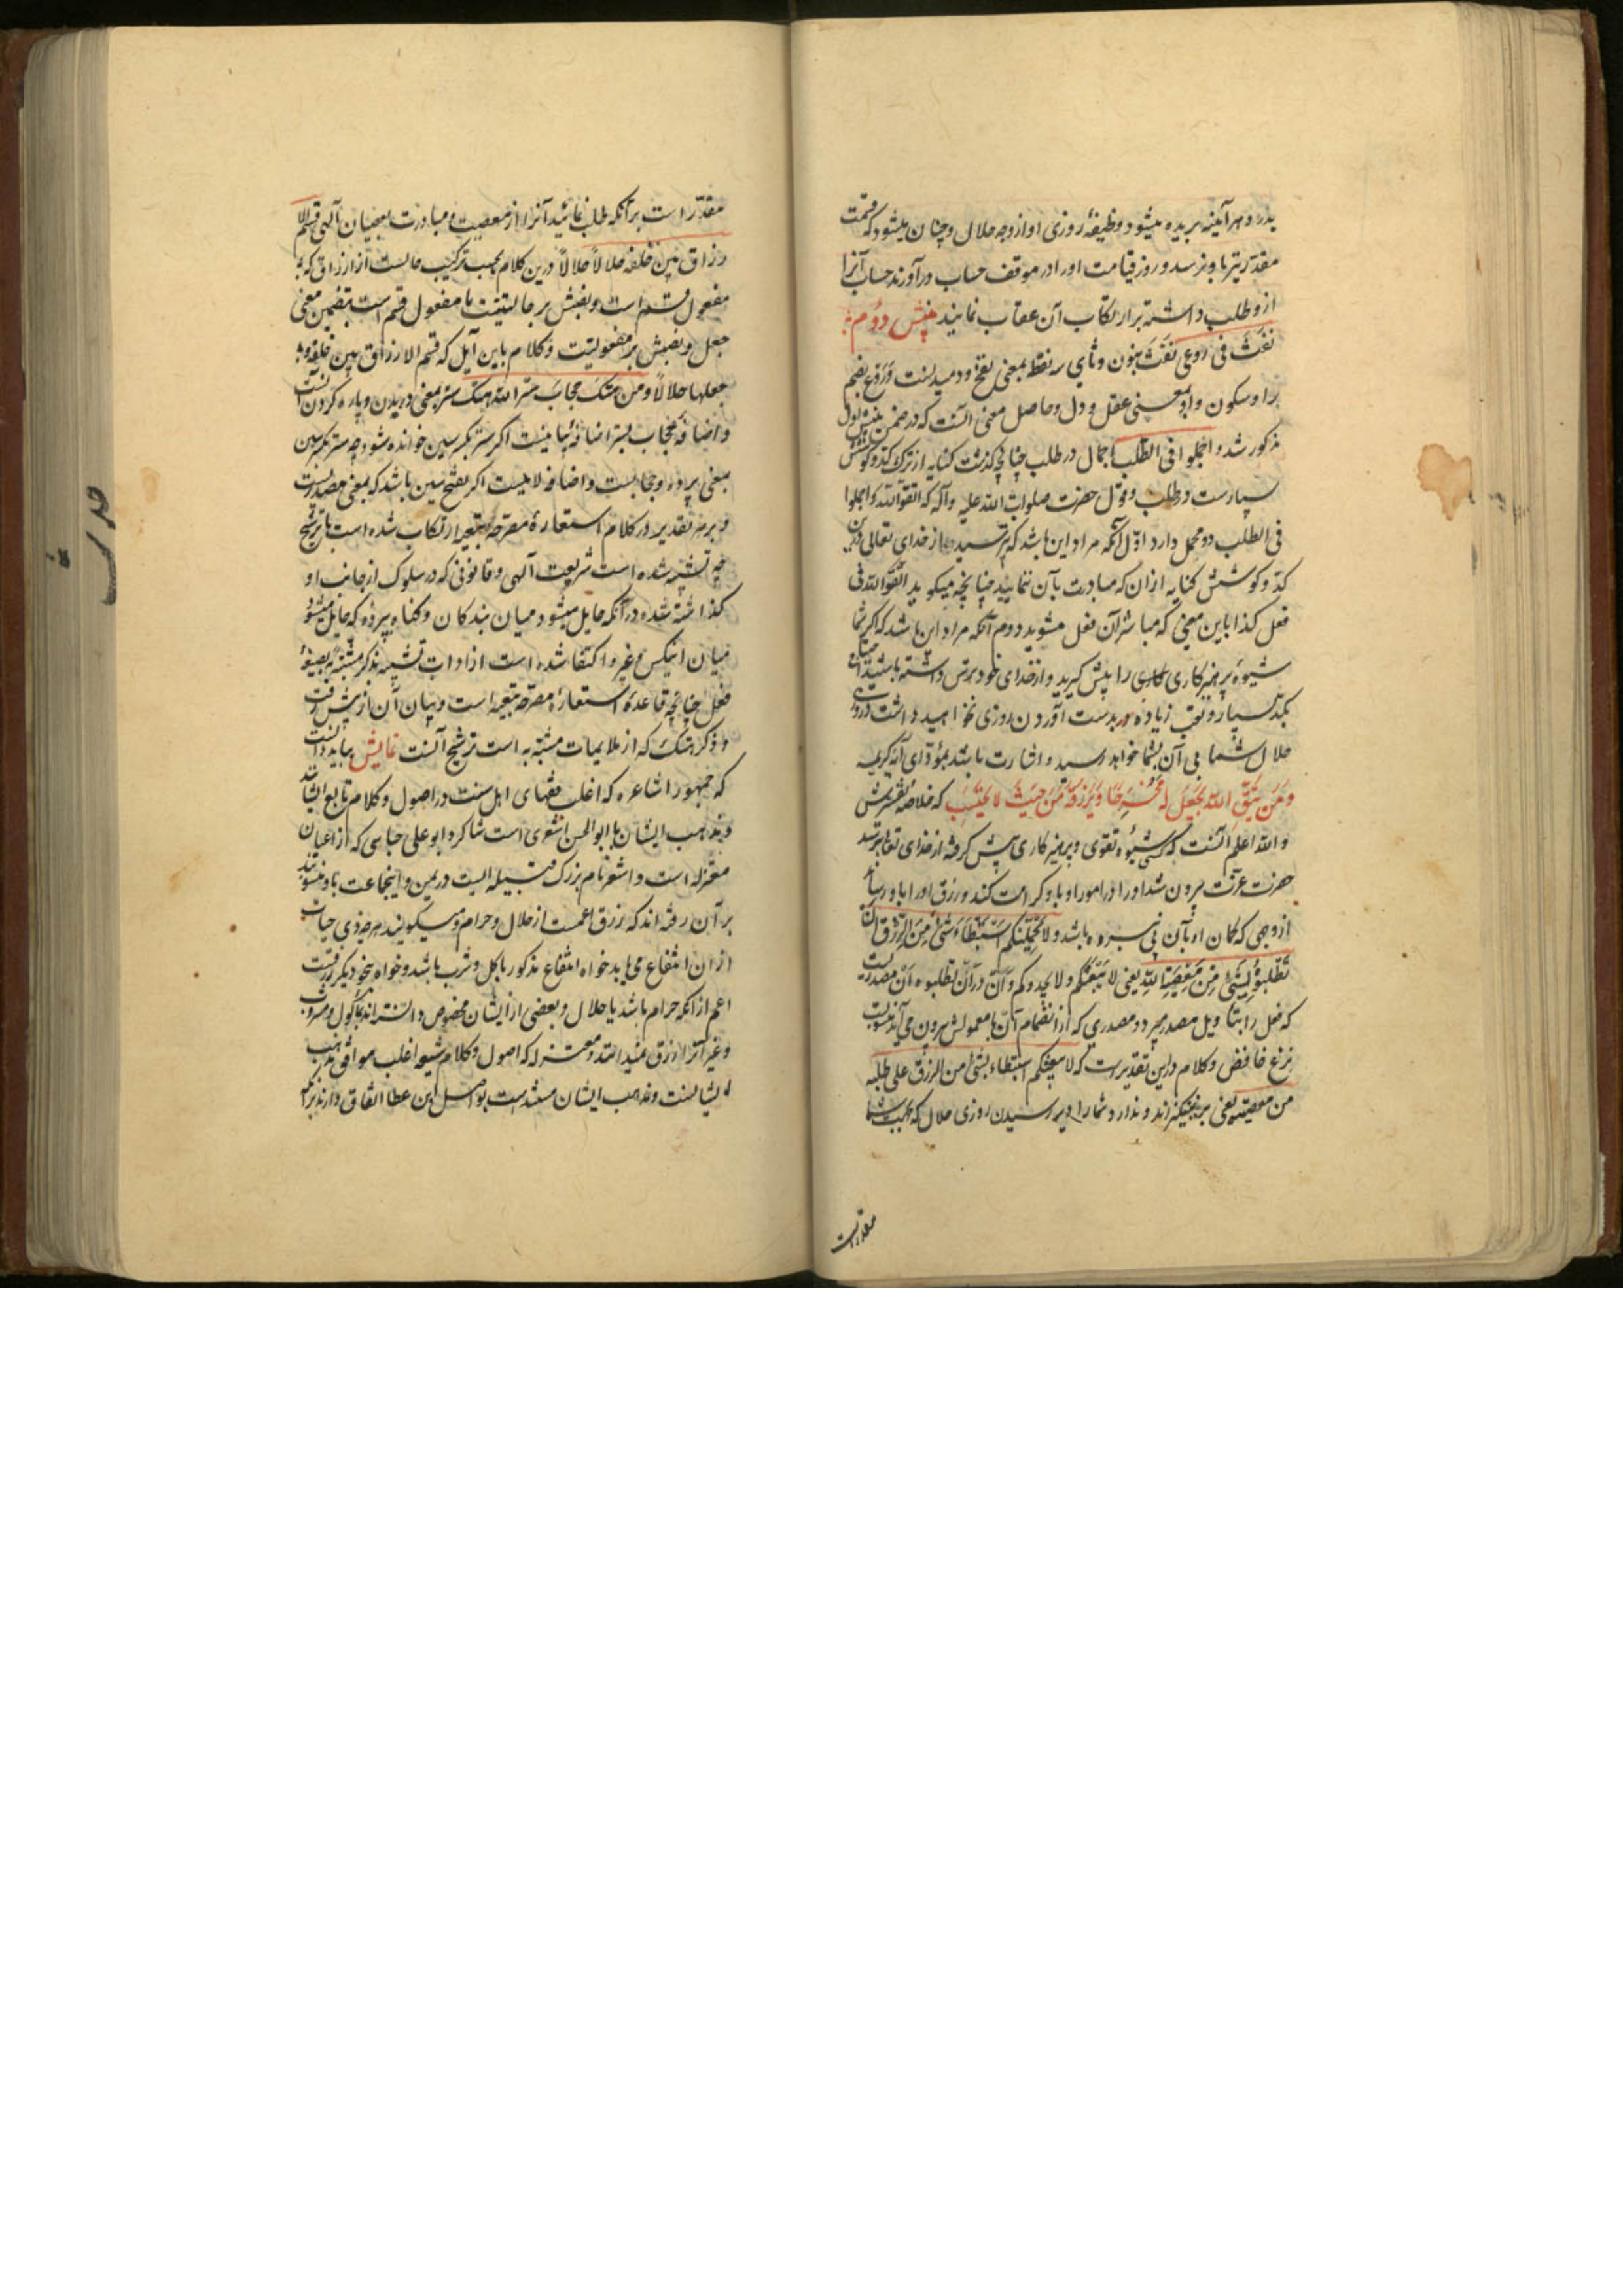 بدرد هر آینه بریده میشود وظیفهٔ روزی او از وجه حلال و چنان میشود که قسمت
مقدر نیز باو نرسد و روز قیامت او را در موقف حساب درآورند حساب آنرا
ازو طلب داشته بر ارتکاب آن عقاب نمایند بینش دوم
نفث فی روعی نفث بنون و ثای سه نقطه بمعنی نفخ و دمیدنست و روع بضم
را و سکون واو بمعنی عقل و دل و حاصل معنی آنست که در ضمن بینش اول
مذکور شد و اجملوا فی الطلب اجمال در طلب چنانچه گذشت کنایه از ترک کد و کوشش
بسیارست در طلب و قول حضرت صلوات الله علیه وآله که اتقوا الله و اجملوا
فی الطلب دو محمل دارد اول آنکه مراد این باشد که بترسید از خدای تعالی درین
کد و کوشش کنایه ازان که مبادرت بآن ننمایید چنانچه میگوید اتقوا الله فی
فعل کذا باین معنی که مباشر آن فعل مشوید دوم آنکه مراد این باشد که اگر شما
شیوهٔ پرهیزکاری را پیش گیرید و از خدای خود ترس داشته باشید
بکد بسیار و تعب زیاده در بدست آوردن روزی نخواهید داشت و روزی
حلال شما بی آن بشما خواهد رسید و اشارت باشد بمؤدای آیهٔ کریمه
و من یتق الله یجعل له مخرجا و یرزقه من حیث لا یحتسب که خلاصهٔ تفسیرش
والله اعلم آنست که هر کس شیوهٔ تقوی و پرهیزکاری پیش گرفته از خدای تعالی ترسد
حضرت عزت بیرون شد او را در امور او باو کرامت کند و رزق او را باو رساند
از وجهی که گمان او بآن پی نبرده باشد و لا یحملنکم استبطاء شئ من الرزق ان
تطلبوه بشئ من معصیة الله یعنی لا یبعثکم و لا یحدوکم و ان در ان تطلبوه ان مصدریست
که فعل را بتأویل مصدر میبرد و مصدری که از انضمام ان با معمولش بیرون می آید منصوبست
بنزع خافض و کلام درین تقدیرست که لا یبعثکم استبطاء بشئ من الرزق علی طلبه
من معصیته یعنی برنینگیزاند و ندارد شمارا دیر رسیدن روزی حلال که بحسب شما
مقدرست
مقدر است بر آنکه طلب نمائید آنرا از معصیت و مبادرت بعصیان آلهی قسم الا
رزاق بین خلقه حلالاً حلالاً درین کلام بحسب ترکیب حالست از ارزاق که
مفعول قسم است و نصبش بر حالیتست یا مفعول قسم است بتضمین معنی
جعل و نصبش بر مفعولیت و کلام باین آیل که قسم الارزاق بین خلقه و
جعلها حلالاً و من هتک حجاب ستر الله هتک ستر بمعنی دریدن و پاره کردن آنست
و اضافهٔ حجاب بستر اضافهٔ بیانیست اگر ستر بکسر سین خوانده شود چه ستر بکسر سین
بمعنی پرده و حجابست و اضافه لامیست اگر بفتح سین باشد که بمعنی مصدریست
و بر هر تقدیر در کلام استعارهٔ مصرحهٔ تبعیه ارتکاب شده است با ترشیح
چه تشبیه شده است شریعت آلهی و قانونی که در سلوک از جانب او
گذاشته شده در آنکه حایل میشود میان بندگان و گناه بپرده که حایل میشود
میان اینکس و غیر و اکتفا شده است از ادات تشبیه بذکر مشبه به بصیغهٔ
فعل چنانچه قاعدهٔ استعارهٔ مصرحه تبعیه است و بیان آن از پیش رفت
و ذکر هتک که از ملایمات مشبه به است ترشیح آنست نمایش بباید دانست
که جمهور اشاعره که اغلب فقهای اهل سنت در اصول و کلام تابع ایشانند
و مذهب ایشان با ابو الحسن اشعری است شاگرد ابو علی جبایی که از اعیان
معتزله است و اشعر نام بزرگ قبیله ایست در یمن و اینجماعت باو منسوبند
بر آن رفته اند که رزق اعمست از حلال و حرام و میگویند هر چه ذی حیات
ازان انتفاع می یابد خواه انتفاع مذکور باکل و شرب باشد و خواه بنحو دیگر رزقست
اعم از آنکه حرام باشد یا حلال و بعضی از ایشان مخصوص داشته اند بمأکول و مشروب
و غیر آنرا رزق نمیدانند و معتزله که اصول و کلام شیعه اغلب موافق مذهب
ایشانست و مذهب ایشان مستند است بواصل ابن عطا اتفاق دارند بر آنکه